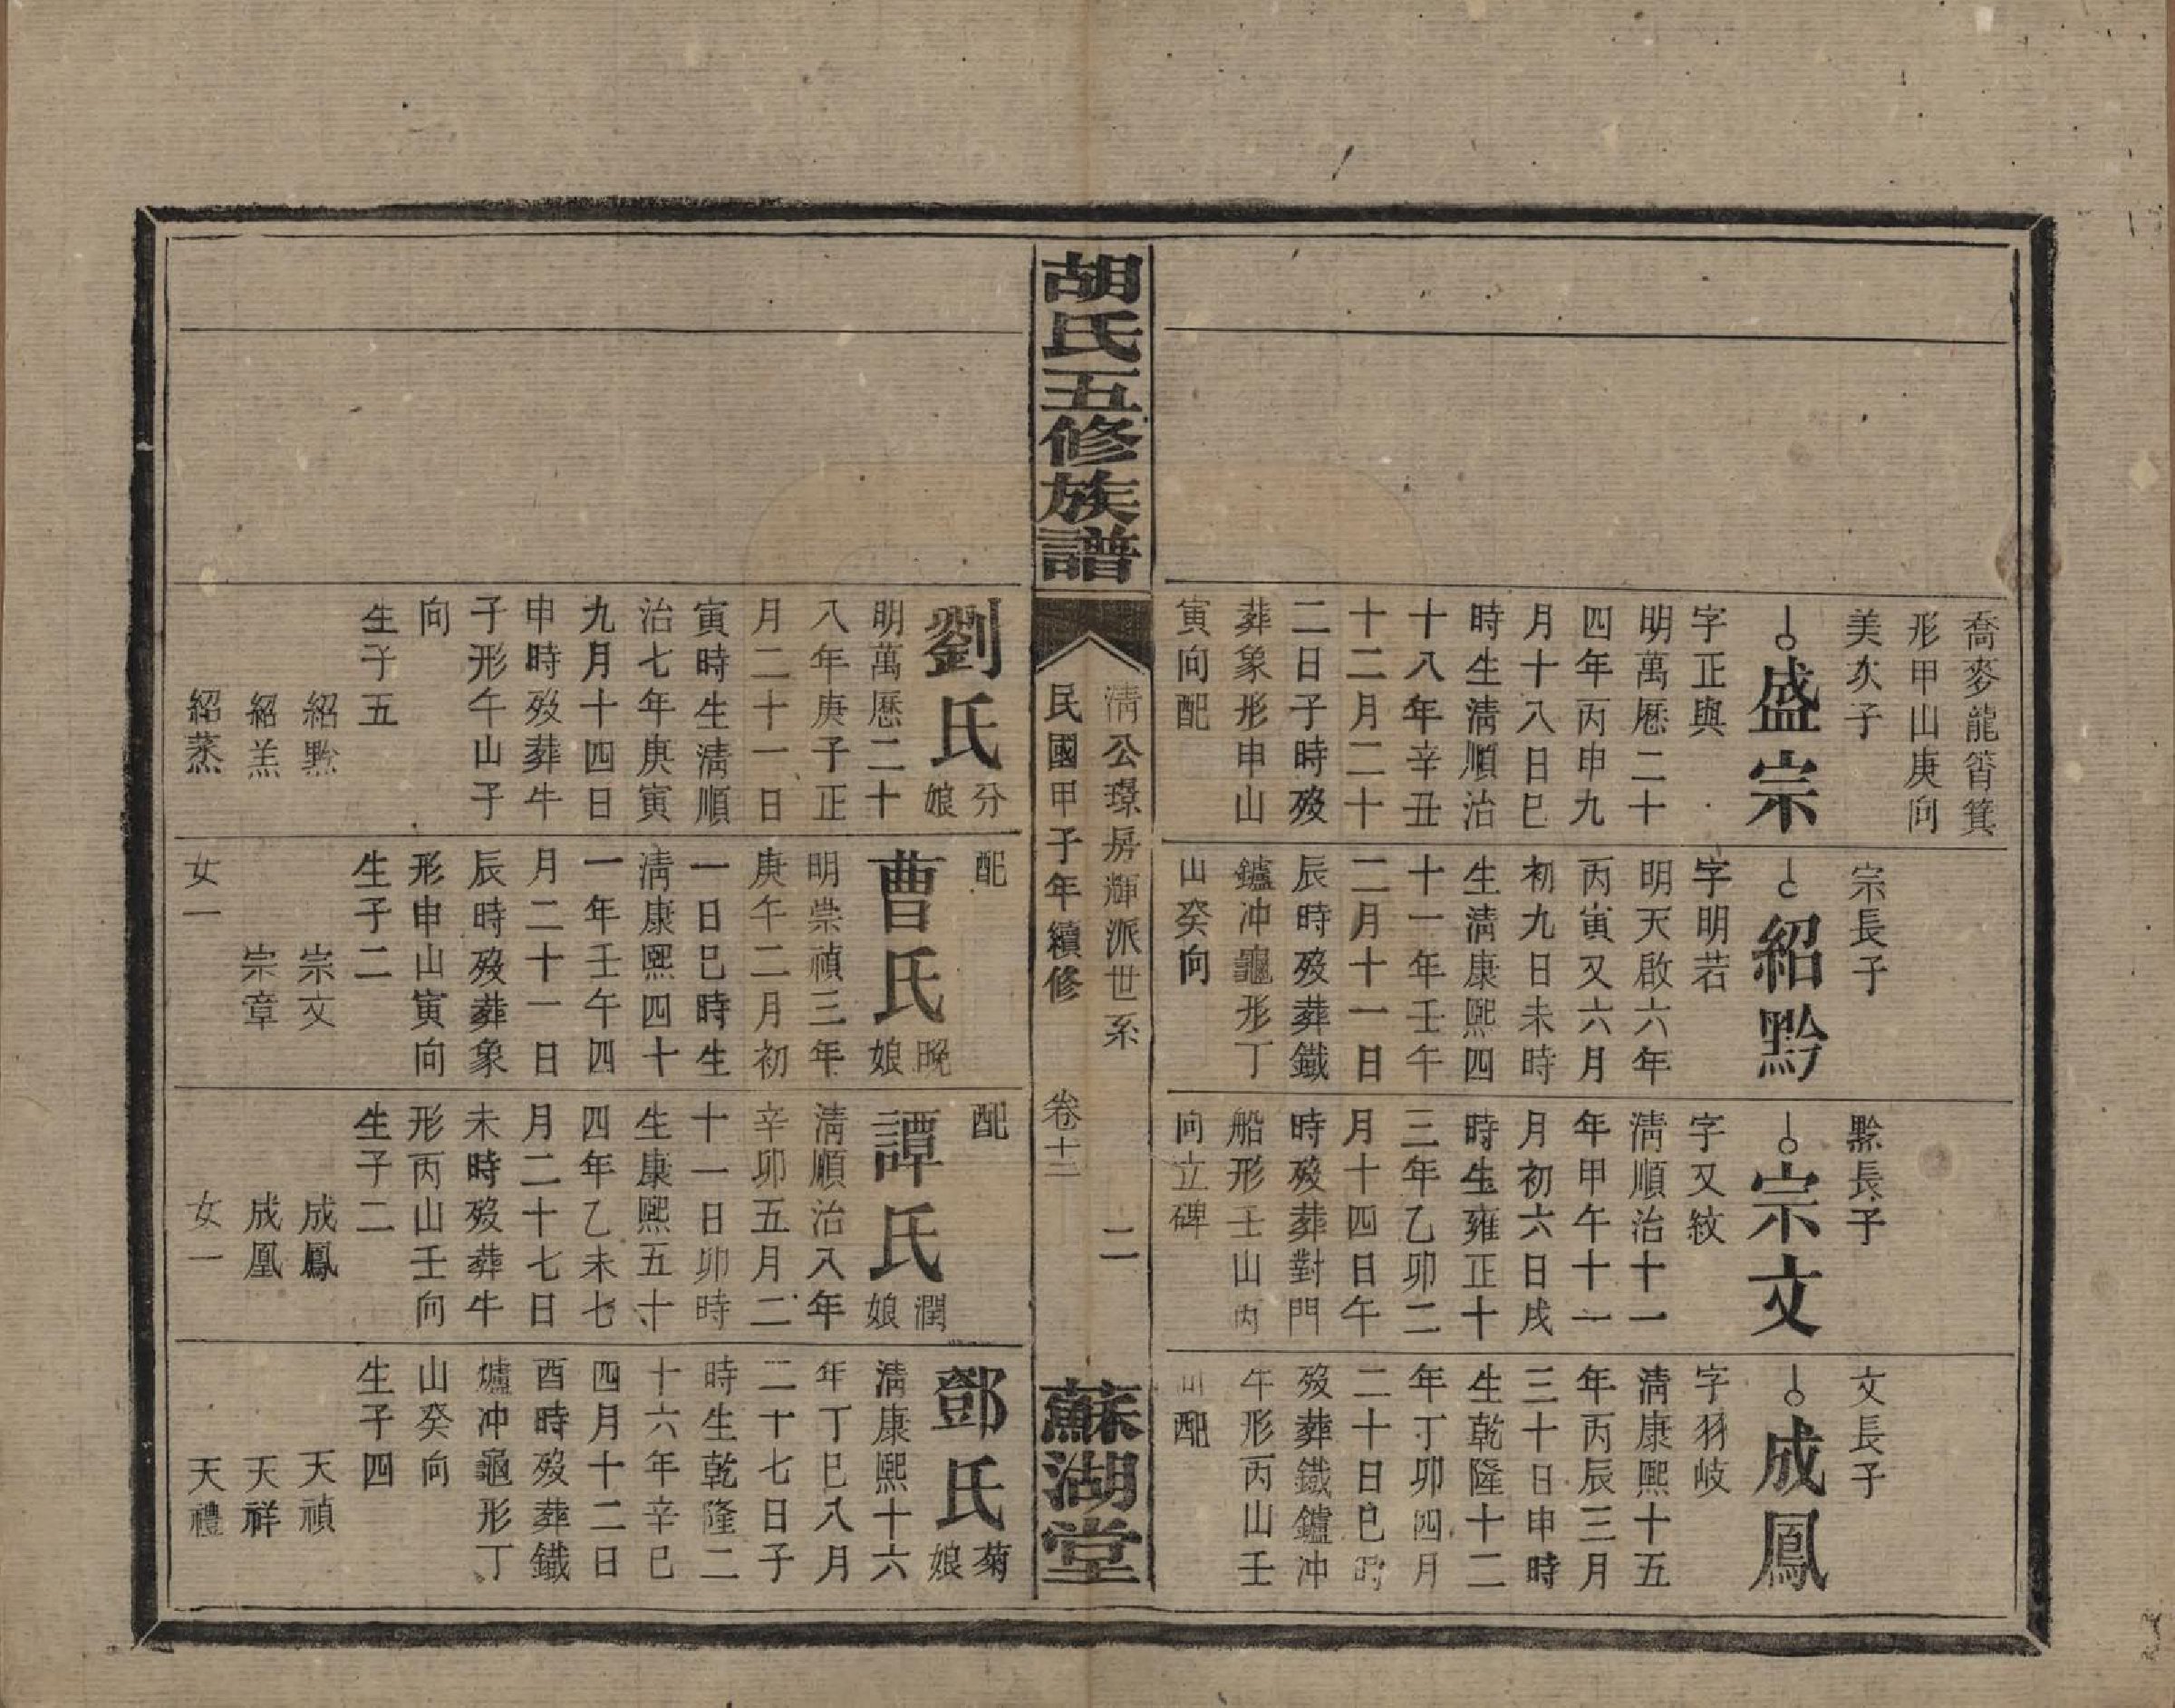 喬麥龍筲箕
形甲山庚向
美次子
盛宗
字正與
明萬厯二十
四年丙申九
月十八日巳
時生淸順治
十八年辛丑
十二月二十
二日子時殁
葬象形申山
寅向配
宗長子
紹黔
字明若
明天啟六年
丙寅又六月
初九日未時
生淸康熙四
十一年壬午
二月十一日
辰時殁葬鐵
鑪冲龜形丁
山癸向
黔長子
宗文
字又紋
淸順治十一
年甲午十一
月初六日戌
時生雍正十
三年乙卯二
月十四日午
時殁葬對門
船形壬山丙
向立碑
文長子
成鳳
字羽岐
淸康熙十五
年丙辰三月
三十日申時
生乾隆十二
年丁卯四月
二十日巳時
殁葬鐵鑪冲
牛形丙山壬
配
胡氏五修族譜
淸公璟房輝派世系
二
民國甲子年續修
卷十二
蘇湖堂
劉氏
分娘
明萬厯二十
八年庚子正
月二十一日
寅時生淸順
治七年庚寅
九月十四日
申時殁葬牛
子形午山子
向
生子五
紹黔
紹羔
紹蒸
配
曹氏
晚娘
明崇禎三年
庚午二月初
一日巳時生
淸康熙四十
一年壬午四
月二十一日
辰時殁葬象
形申山寅向
生子二
宗文
宗章
女一
配
譚氏
潤娘
淸順治八年
辛卯五月二
十一日卯時
生康熙五十
四年乙未七
月二十七日
未時殁葬牛
形丙山壬向
生子二
成鳳
成凰
女一
鄧氏
菊娘
淸康熙十六
年丁巳八月
二十七日子
時生乾隆二
十六年辛巳
四月十二日
酉時殁葬鐵
爐冲龜形丁
山癸向
生子四
天禎
天祥
天禮